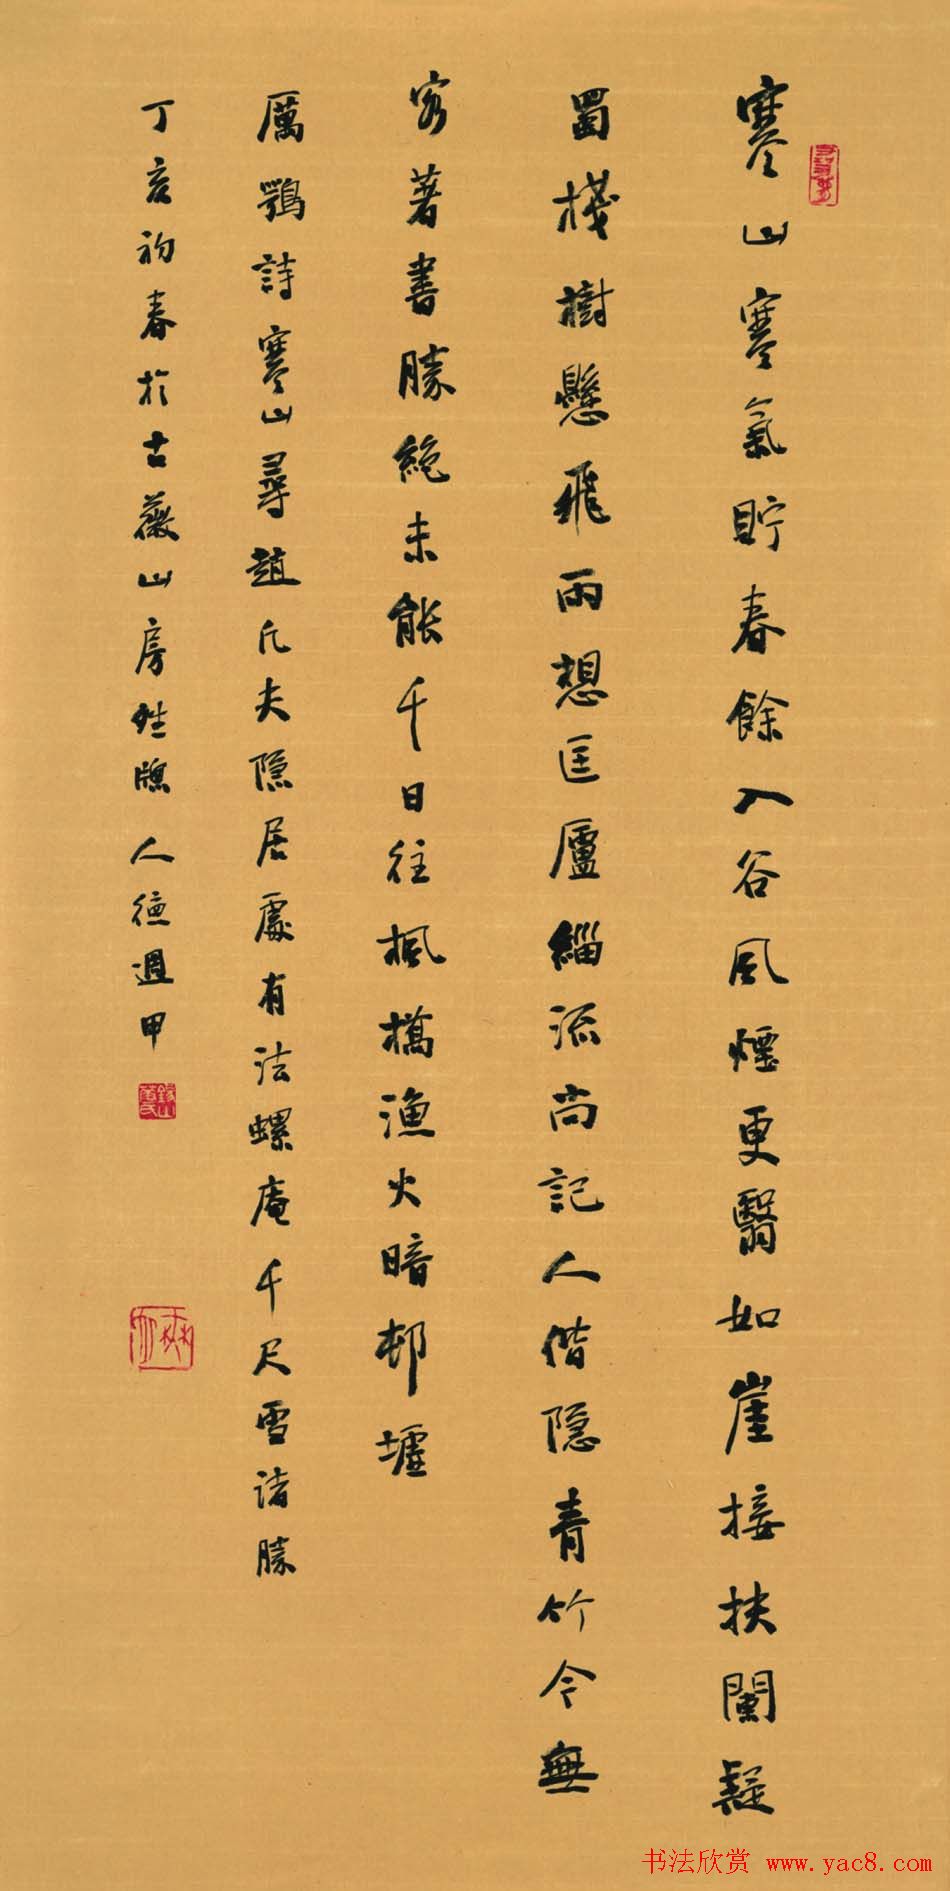 寒山寒氣貯春餘入谷風煙更翳如崖接扶闌疑
蜀棧樹懸飛雨想匡廬緇流尚記人偕隱青竹今無
客著書勝絕未能千日往楓橋漁火暗邨墟
厲鶚詩寒山尋趙凡夫隱居處有法螺庵千尺雪諸勝
丁亥初春於古薇山房牕人德週甲
书法欣赏 www.yac8.com